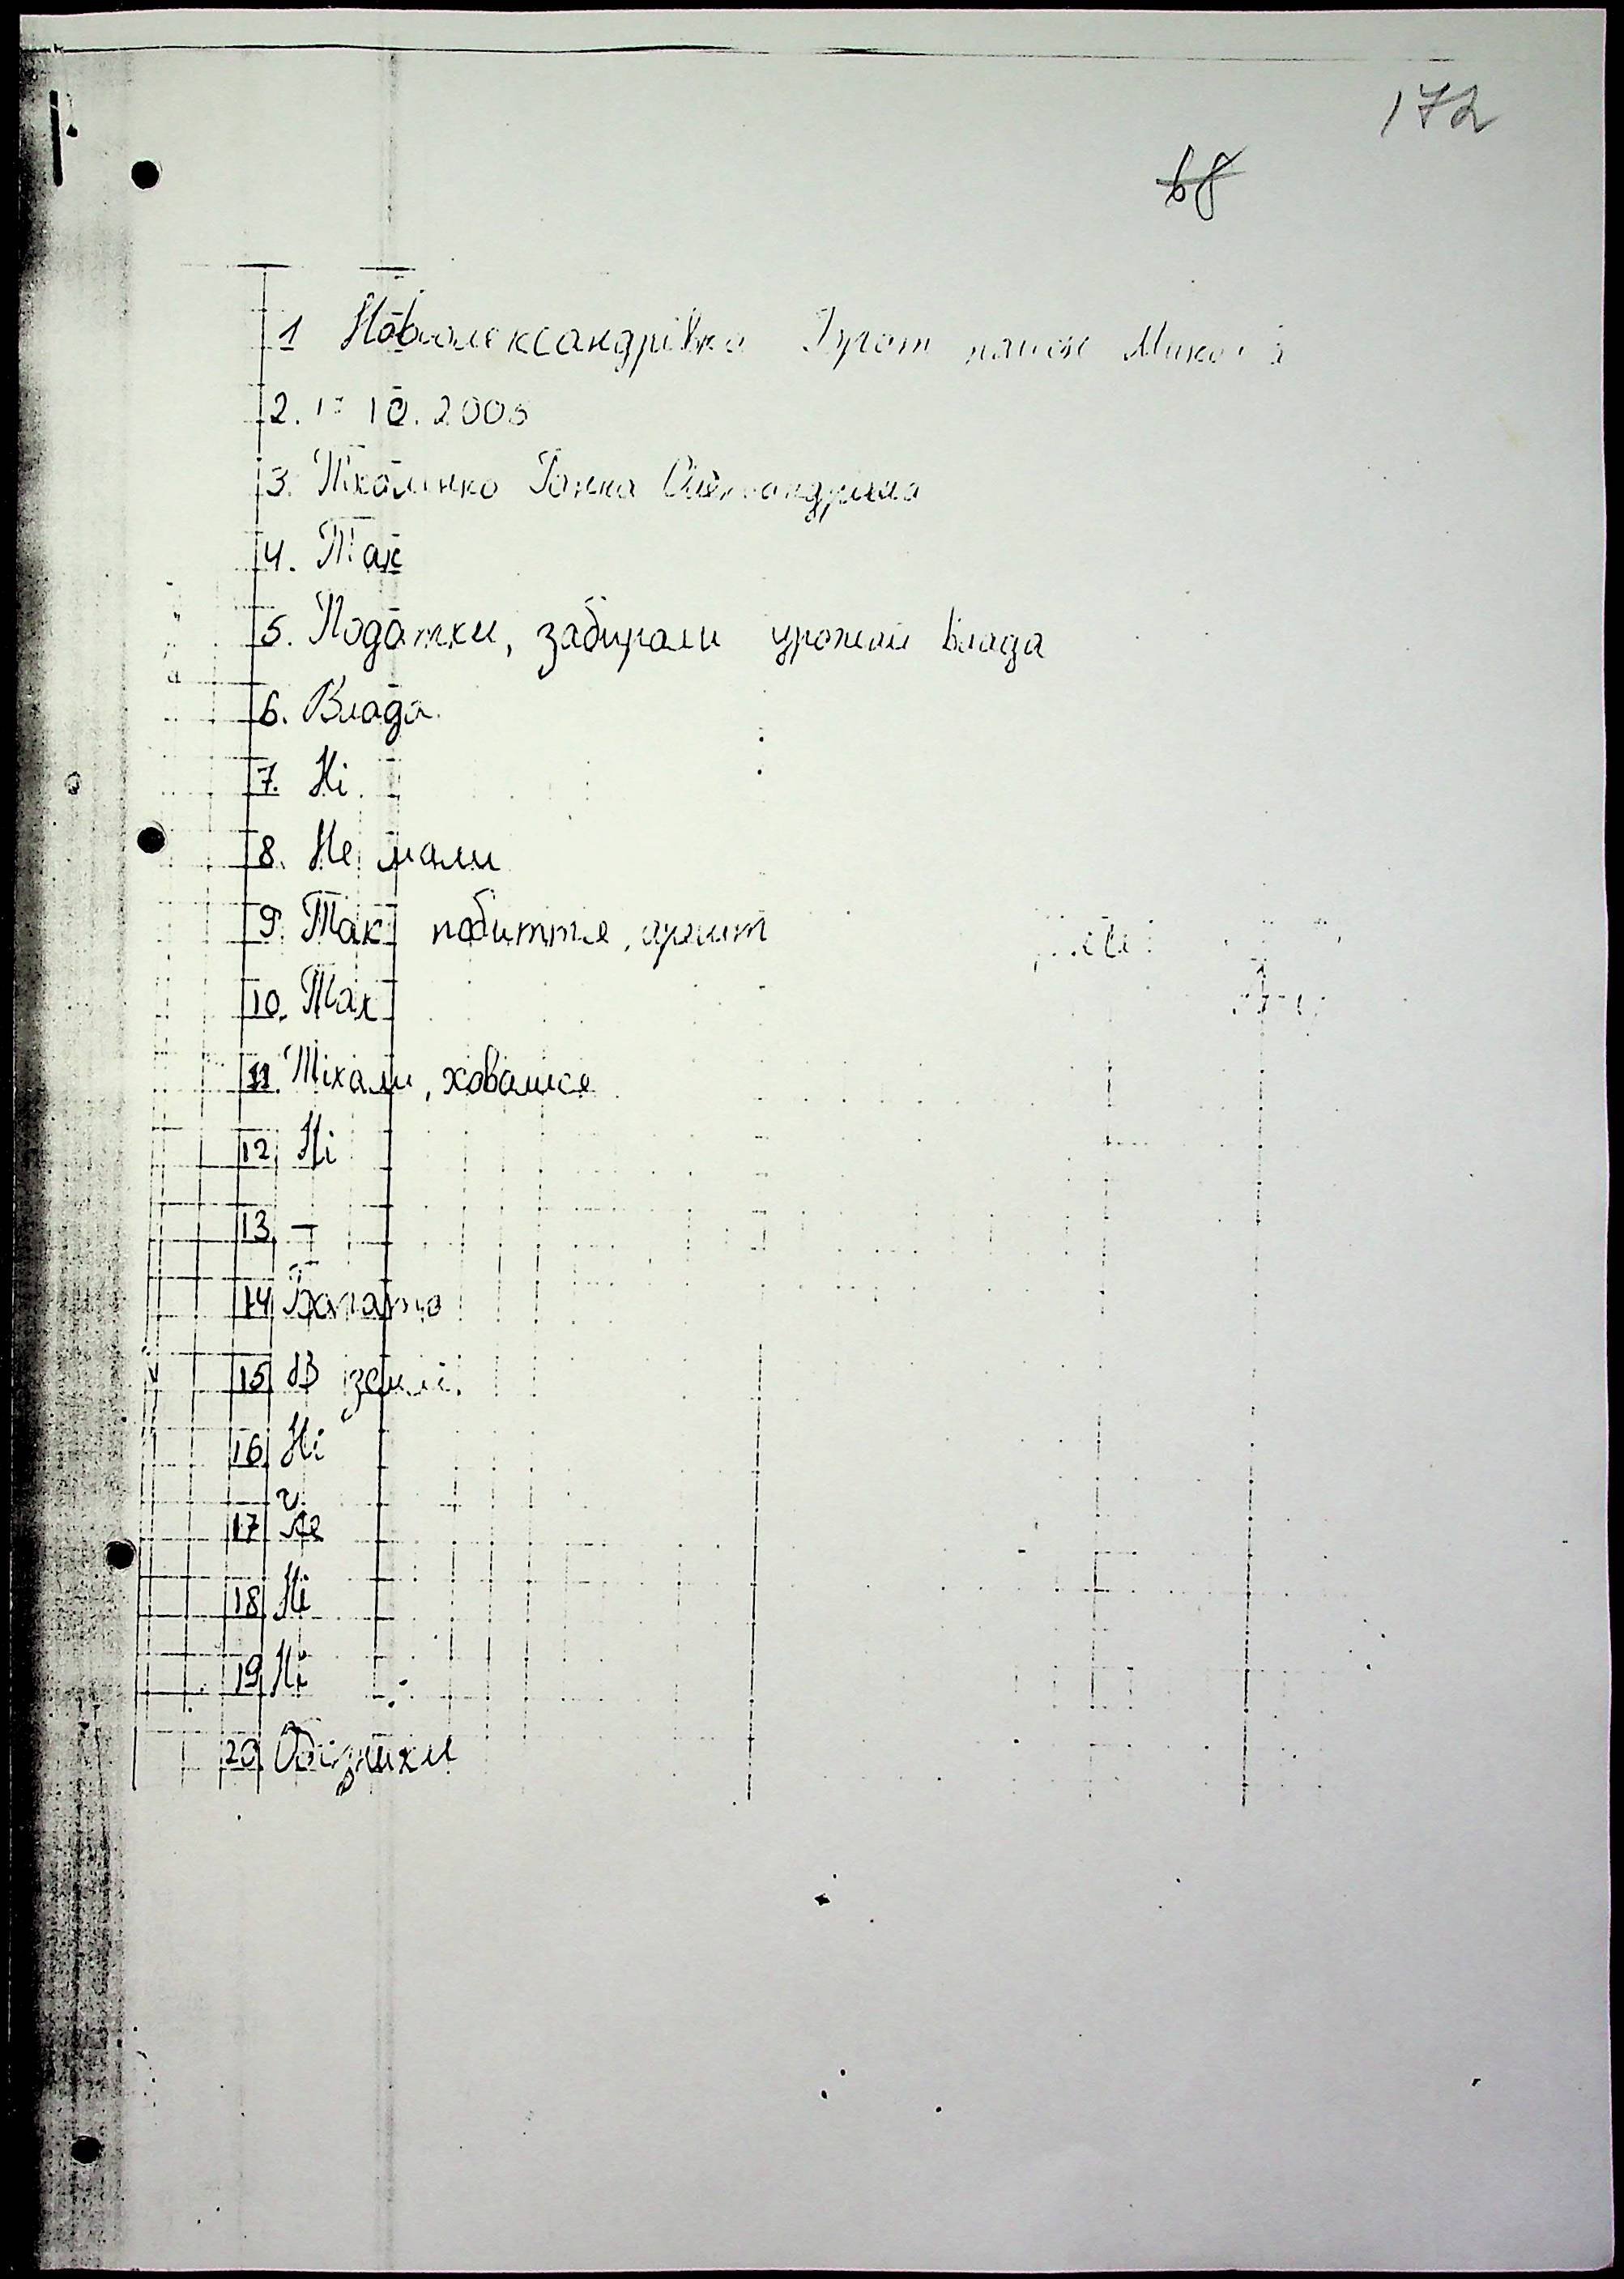 172
68
1 Новоолександрівка
2. 10.2005
3. Ганна Олександрівна
4. Так
5. Податки, забирали урожай влада
6. Влада.
7. Ні.
8. Не мали
9. Так побиття, арешт
10. Так
11. Тікали, ховалися
12. Ні
13. —
14. Багато
15. В землі.
16. Ні
17. Не
18. Ні
19. Ні
20.